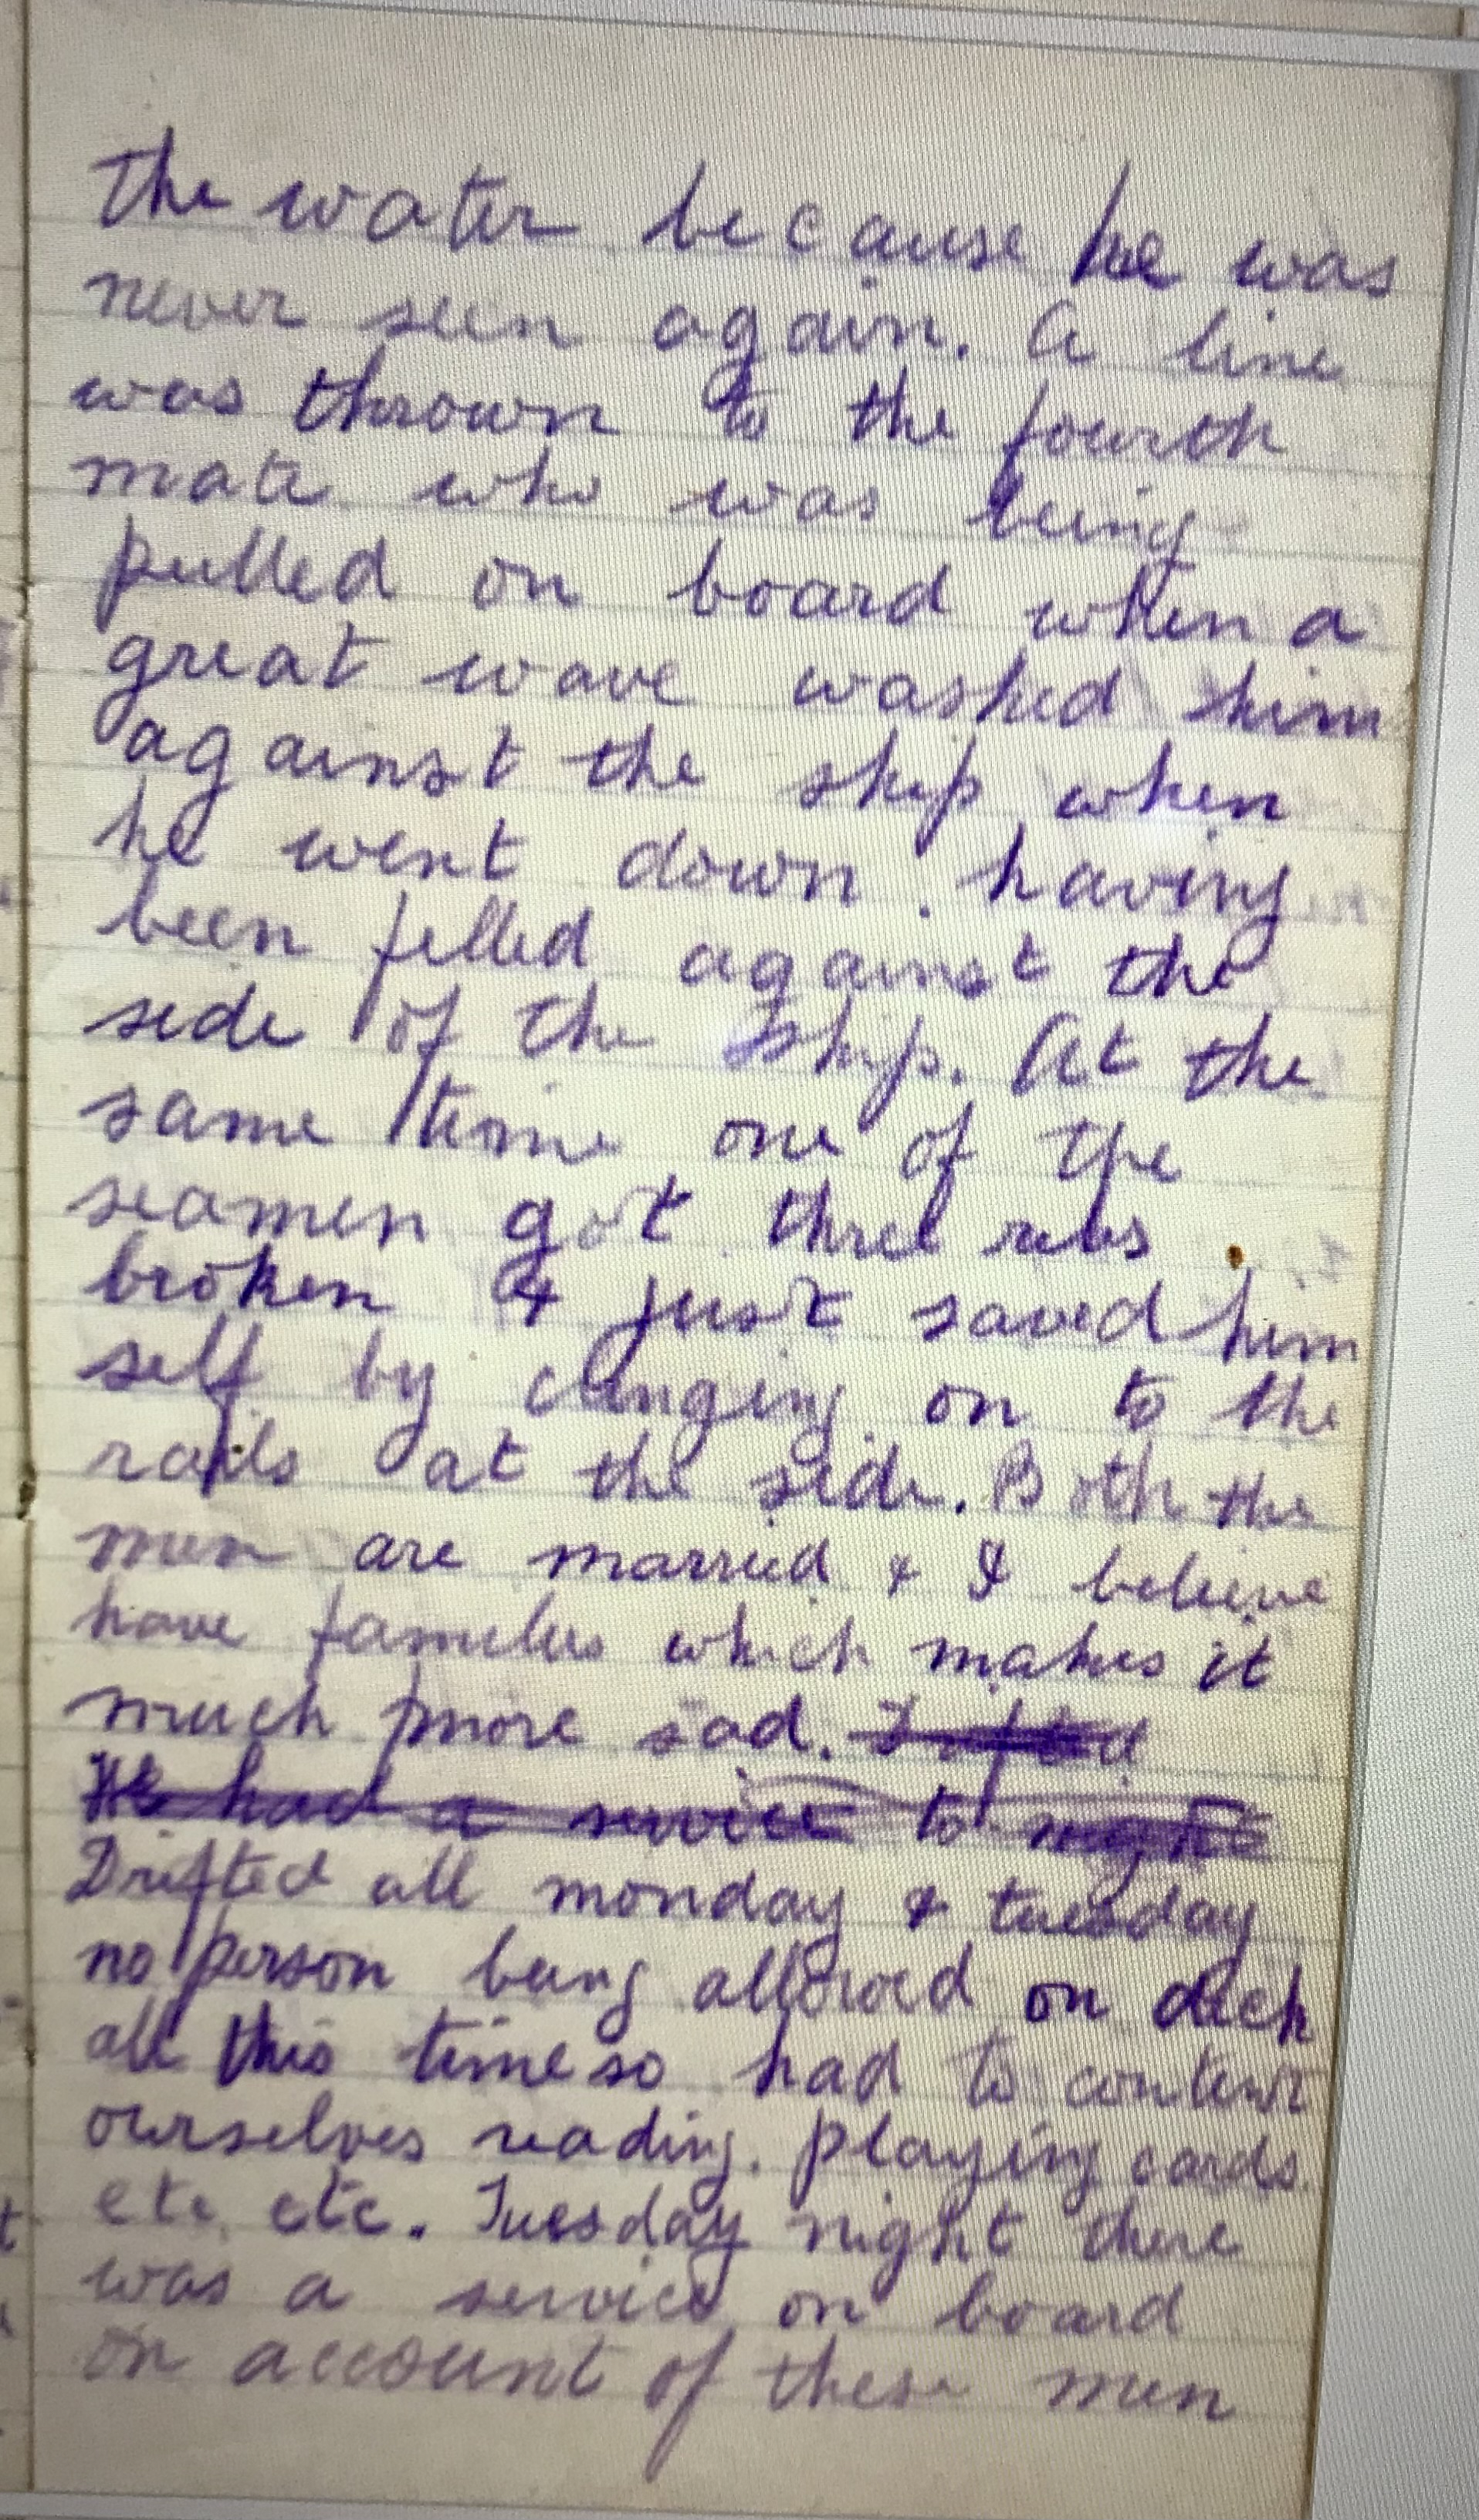 The water because he was
never seen again. A line
was thrown to the fourth
mate who was being
pulled on board when a
great wave washed him
against the ship when
he went down. having
been felled against the
side of the ship. At the
same time one of the
seamen got three ribs
broken & just saved him
self by clinging on to the
rails at the side. Both the
men are married & I believe
have families which makes it
much more sad.
We had a service to night
Drifted all monday & tuesday
no person being allowed on deck
all this time so had to content
ourselves reading. playing cards.
etc, etc. Tuesday night there
was a service on board
on account of these men